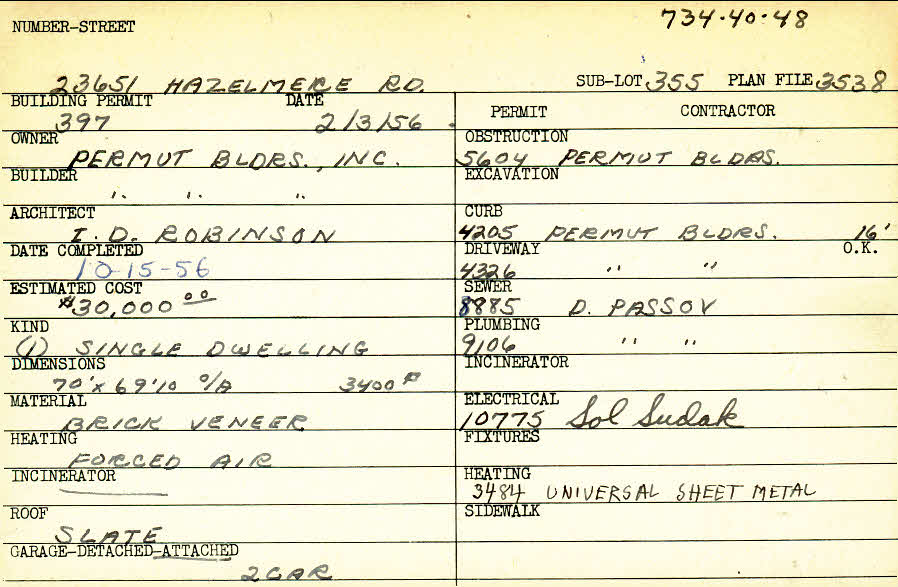 734-40-48
NUMBER-STREET
23651 HAZELMERE RD.
SUB-LOT 355 PLAN FILE 3538
BUILDING PERMIT DATE
397 2/3/56
OWNER
PERMUT BLDRS., INC.
BUILDER
" " "
ARCHITECT
I. D. ROBINSON
DATE COMPLETED
10-15-56
ESTIMATED COST
$30,000 00
KIND
(1) SINGLE DWELLING
DIMENSIONS
70' x 69'10 O/A 3400
MATERIAL
BRICK VENEER
HEATING
FORCED AIR
INCINERATOR
ROOF
SLATE
GARAGE-DETACHED-ATTACHED
2 CAR
PERMIT CONTRACTOR
OBSTRUCTION
5604 PERMUT BLDRS.
EXCAVATION
CURB
4205 PERMUT BLDRS. 16'
DRIVEWAY O.K.
4326 " "
SEWER
8885 D. PASSOV
PLUMBING
9106 " "
INCINERATOR
ELECTRICAL
10775 Sol Sudak
FIXTURES
HEATING
3484 UNIVERSAL SHEET METAL
SIDEWALK